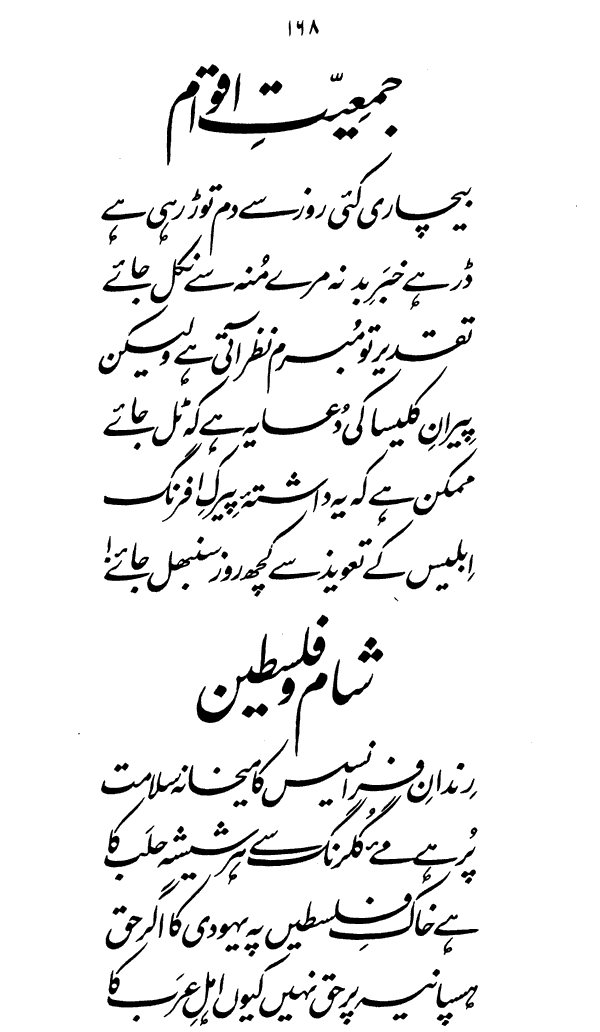 ۱۶۸
جمعیّتِ اقوام
بیچاری کئی روز سے دم توڑ رہی ہے
ڈر ہے خبرِ بد نہ مرے مُنہ سے نکل جائے
تقدیر تو مُبرم نظر آتی ہے ولیکن
پیرانِ کلیسا کی دُعا یہ ہے کہ ٹل جائے
ممکن ہے کہ یہ داشتۂ پیرکِ افرنگ
اِبلیس کے تعویذ سے کچھ روز سنبھل جائے!
شام و فلسطین
رِندانِ فرانسیس کا میخانہ سلامت
پُر ہے مئے گُلرنگ سے ہر شیشہ حلَب کا
ہے خاکِ فلسطیں پہ یہودی کا اگر حق
ہسپانیہ پر حق نہیں کیوں اہلِ عرَب کا